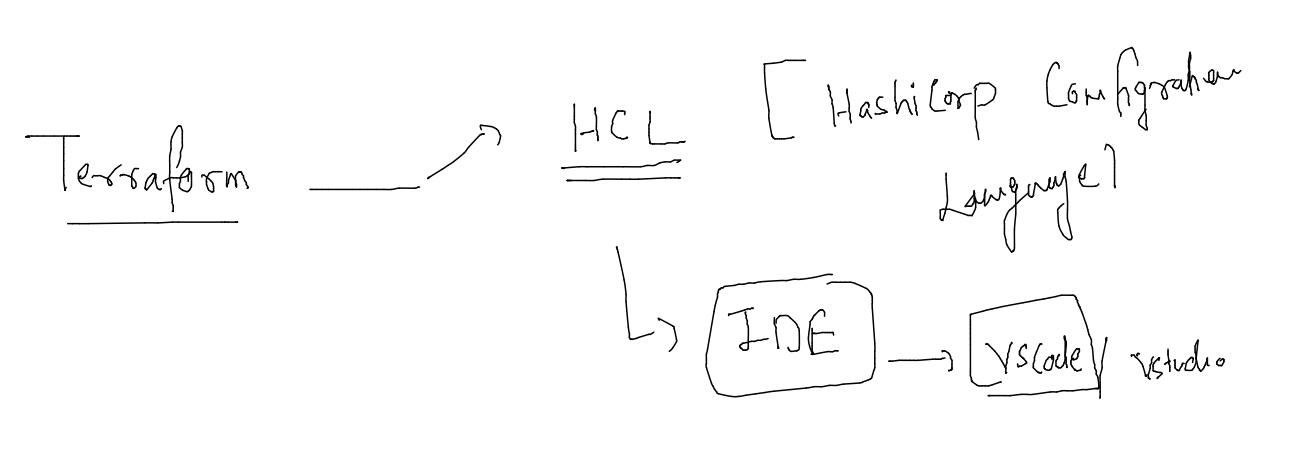 Terraform
HCL
[ HashiCorp Configration
Language]
IDE
VSCode / vstudio